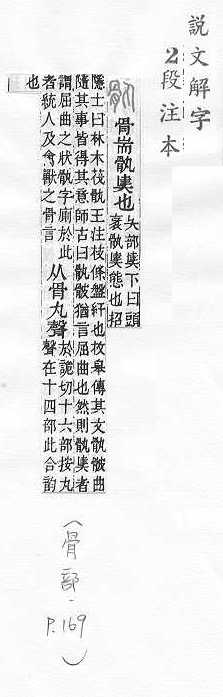 說文解字
2段注本
骫
骨耑骫奊也
夨部奊下曰頭
衺骫奊態也招
隱士曰林木茷骫王注枝條盤紆也枚臯傳其文骫骳曲
隨其事皆得其意師古曰骫骳猶言屈曲也然則骫奊者
謂屈曲之狀骫字廁於此
者統人及禽獸之骨言
从骨丸聲
於詭切十六部按丸
聲在十四部此合韵
也
(骨部-P.169)